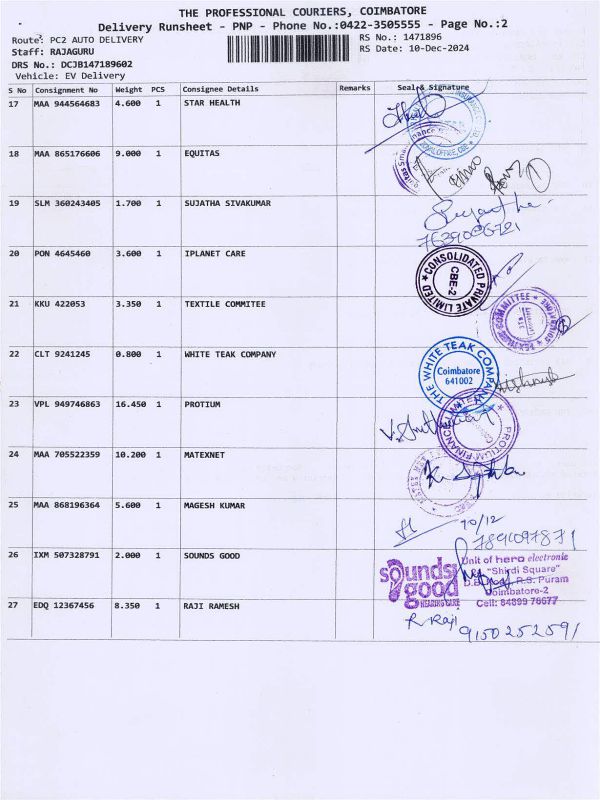 THE PROFESSIONAL COURIERS, COIMBATORE
Delivery Runsheet - PNP - Phone No.:0422-3505555 - Page No.:2
Route: PC2 AUTO DELIVERY
RS No.: 1471896
Staff: RAJAGURU
RS Date: 10-Dec-2024
DRS No.: DCJB147189602
Vehicle: EV Delivery
S No Consignment No Weight PCS Consignee Details Remarks Seal & Signature
17 MAA 944564683 4.600 1 STAR HEALTH
18 MAA 865176606 9.000 1 EQUITAS
19 SLM 360243405 1.700 1 SUJATHA SIVAKUMAR
20 PON 4645460 3.600 1 IPLANET CARE
CONSOLIDATED PRIVATE LIMITED
CBE-2
21 KKU 422053 3.350 1 TEXTILE COMMITEE
22 CLT 9241245 0.800 1 WHITE TEAK COMPANY
THE WHITE TEAK COMPANY
Coimbatore
641002
23 VPL 949746863 16.450 1 PROTIUM
PROTIUM FINANCE LIMITED
24 MAA 705522359 10.200 1 MATEXNET
25 MAA 868196364 5.600 1 MAGESH KUMAR
10/12
26 IXM 507328791 2.000 1 SOUNDS GOOD
sounds good
HEARING CARE
Unit of hero electronic
"Shirdi Square"
R.S. Puram
Coimbatore-2
Cell: 84899 76677
27 EDQ 12367456 8.350 1 RAJI RAMESH
R Raji
9150252591